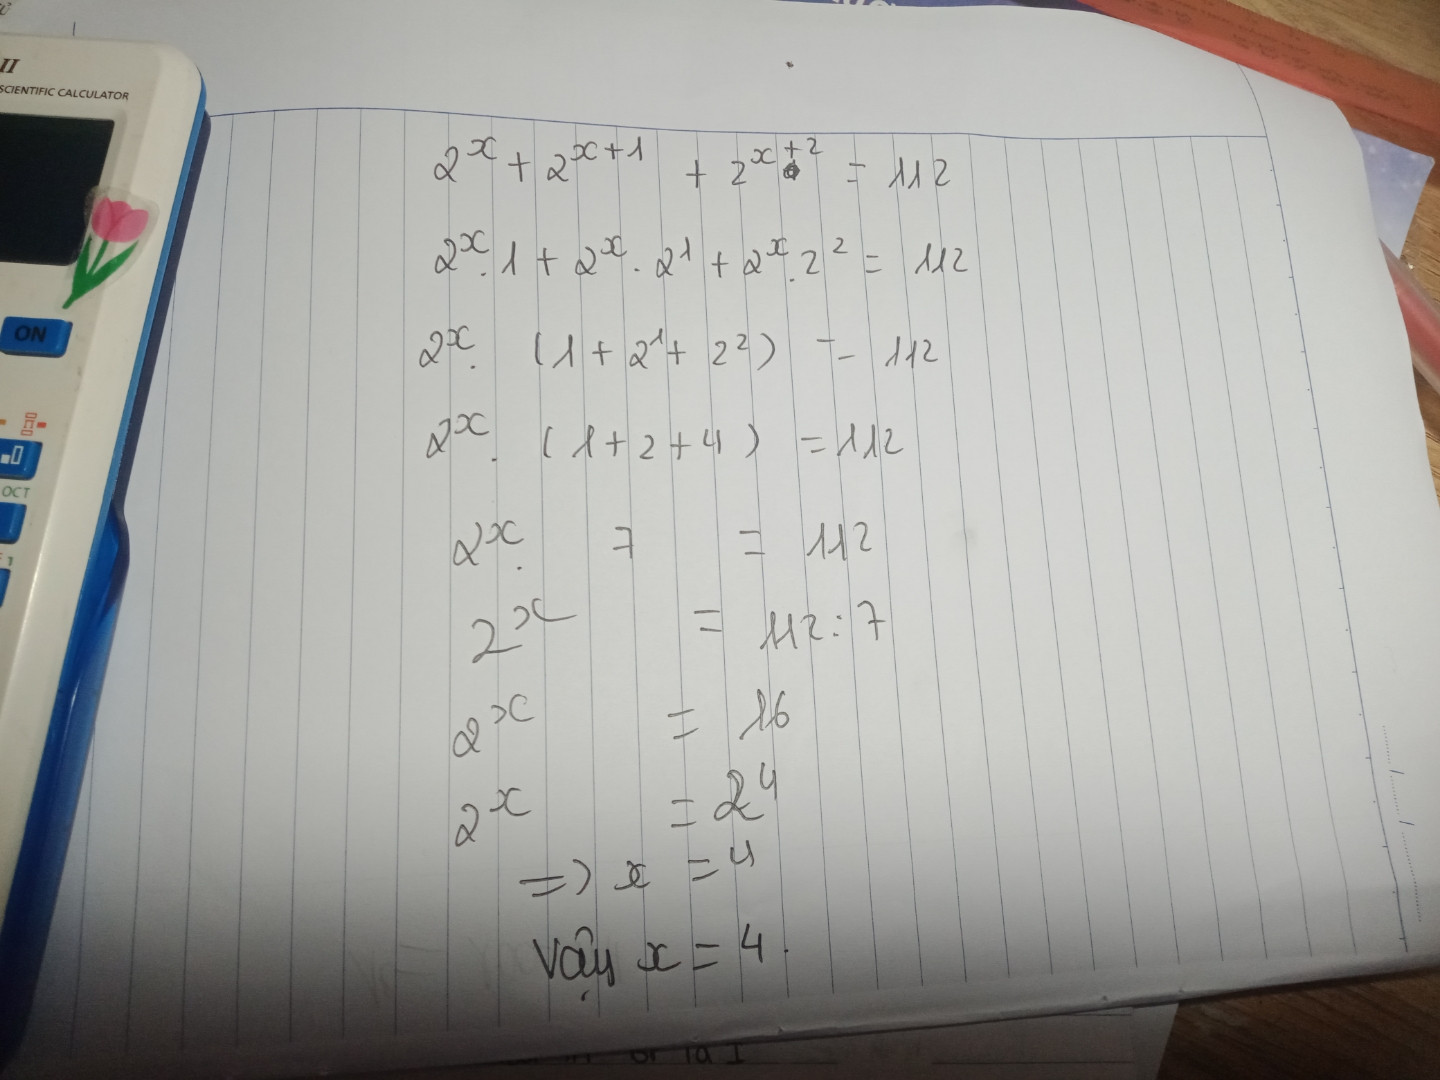 II
SCIENTIFIC CALCULATOR
ON
OCT
2^x + 2^{x+1} + 2^{x+2} = 112
2^x . 1 + 2^x . 2^1 + 2^x . 2^2 = 112
2^x . (1 + 2^1 + 2^2) = 112
2^x . (1 + 2 + 4) = 112
2^x . 7 = 112
2^x = 112 : 7
2^x = 16
2^x = 2^4
=> x = 4
Vậy x = 4.